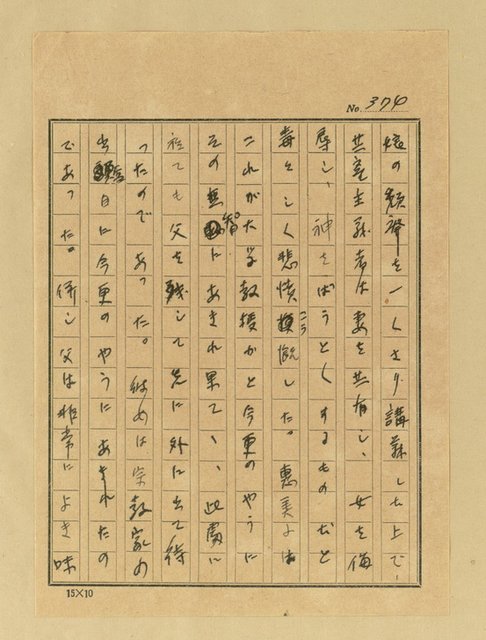 No. 374
娘の頽廃を一くさり講義した上で、
共産主義者は妻を共有し、女を侮
辱し、神をばうとくするものだと
毒々しく悲憤慷慨した。恵美子は
こう
これが大学教授かと今更のやうに
その無智にあきれ果て、、此処に
在ても父を残して先に外に出て待
つたのであつた。彼女は宗教家の
出鱈目に今更のやうにあきれたの
であつた。併し父は非常によき味
15×10